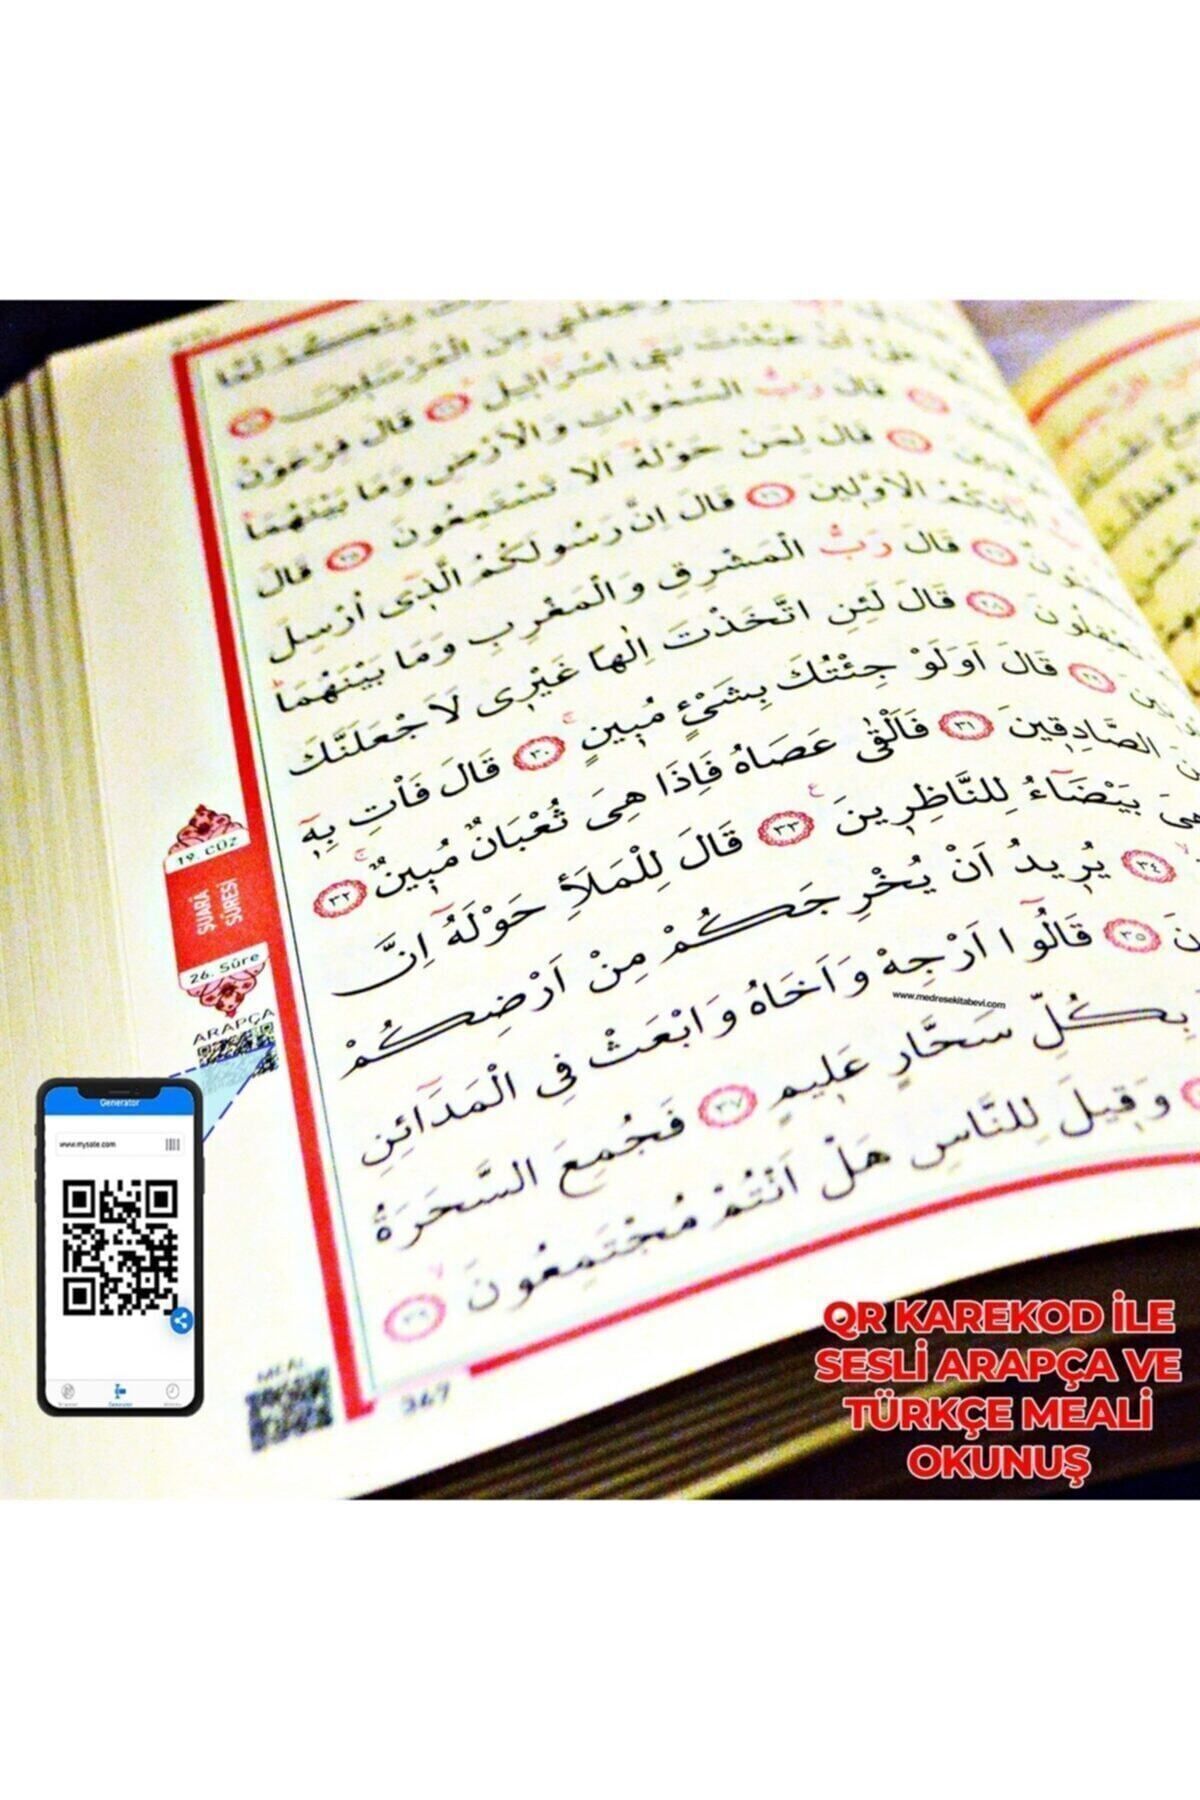 لَمَّا
وَجَعَلَنِي مِنَ الْمُرْسَلِينَ ٢١
بَنِي اِسْرَائِيلَ ٢٢ قَالَ فِرْعَوْنُ
قَالَ رَبُّ السَّمٰوَاتِ وَالْاَرْضِ وَمَا بَيْنَهُمَا
قَالَ لِمَنْ حَوْلَهُٓ اَلَا تَسْتَمِعُونَ ٢٥ قَالَ
اٰبَٓائِكُمُ الْاَوَّلِينَ ٢٦ قَالَ اِنَّ رَسُولَكُمُ الَّذِٓى اُرْسِلَ
٢٧ قَالَ رَبُّ الْمَشْرِقِ وَالْمَغْرِبِ وَمَا بَيْنَهُمَا
تَعْقِلُونَ ٢٨ قَالَ لَئِنِ اتَّخَذْتَ اِلٰهًا غَيْرِى لَاَجْعَلَنَّكَ
قَالَ اَوَلَوْ جِئْتُكَ بِشَىْءٍ مُبِينٍ ٣٠ قَالَ فَأْتِ بِهِٓ
الصَّادِقِينَ ٣١ فَاَلْقٰى عَصَاهُ فَاِذَا هِىَ ثُعْبَانٌ مُبِينٌ ٣٢
هِىَ بَيْضَٓاءُ لِلنَّاظِرِينَ ٣٣ قَالَ لِلْمَلَاِ حَوْلَهُٓ اِنَّ
٣٤ يُرِيدُ اَنْ يُخْرِجَكُمْ مِنْ اَرْضِكُمْ
٣٥ قَالُٓوا اَرْجِهْ وَاَخَاهُ وَابْعَثْ فِى الْمَدَٓائِنِ
بِكُلِّ سَحَّارٍ عَلِيمٍ ٣٧ فَجُمِعَ السَّحَرَةُ
وَقِيلَ لِلنَّاسِ هَلْ اَنْتُمْ مُجْتَمِعُونَ ٣٩
19. CÜZ
ŞUARÂ
SÛRESİ
26. Sûre
ARAPÇA
MEAL
367
www.medresekitabevi.com
Generator
www.mysate.com
Generator
QR KAREKOD İLE
SESLİ ARAPÇA VE
TÜRKÇE MEALİ
OKUNUŞ